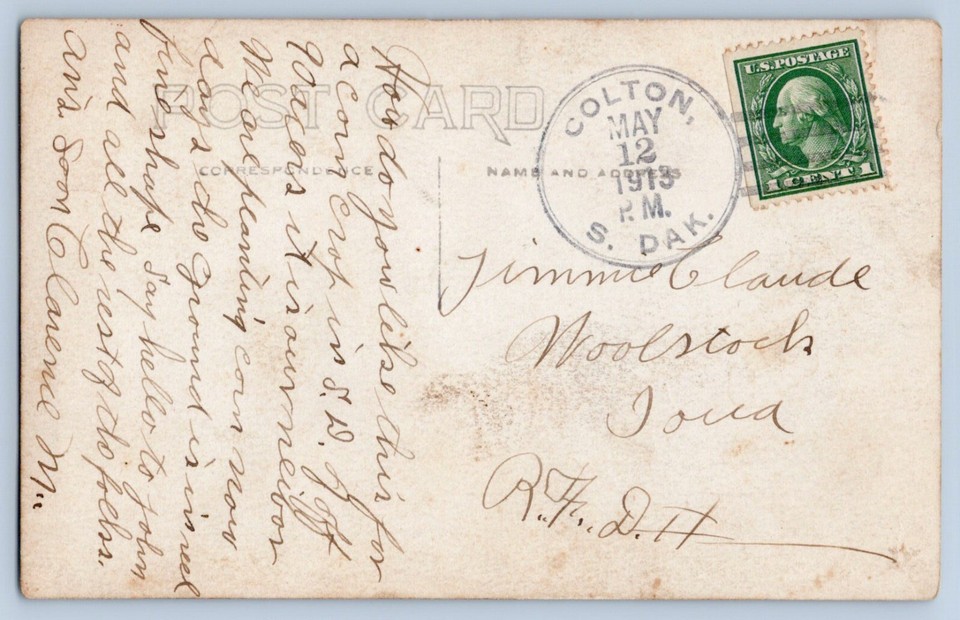 POST CARD
CORRESPONDENCE
NAME AND ADDRESS
COLTON,
MAY
12
1913
P.M.
S. DAK.
U.S. POSTAGE
1 CENT 1
Jimmie Claude
Woolstock
Iowa
R.F.D. #
How do you like this for
a corn crop in S. D. Jeff
Wacer's it is our neibor
We are planting corn now
days the ground is in reel
fine shape Say hello to John
and all the rest of do folks.
ans. soon Clarence M.